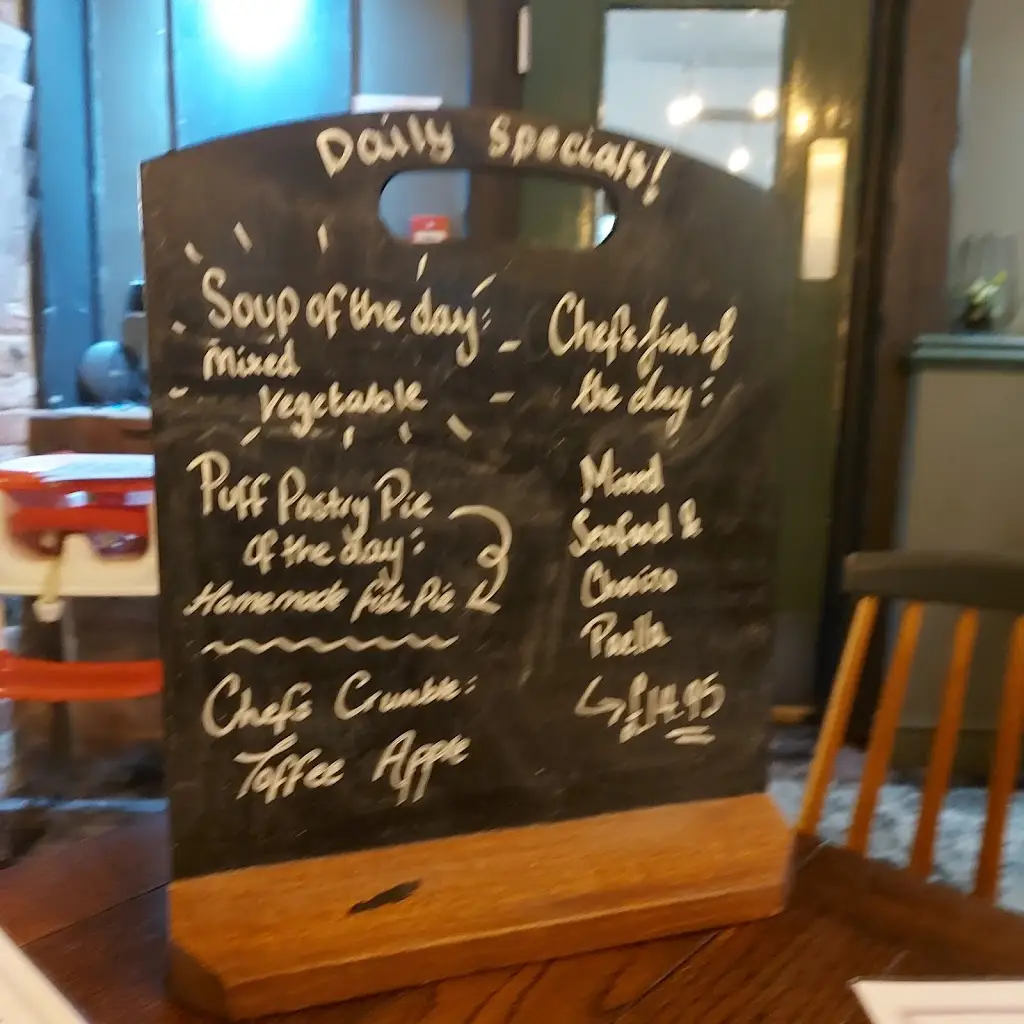 Daily Specials!
Soup of the day:
Mixed
Vegetable
Puff Pastry Pie
of the day:
Homemade fish Pie
Chefs Crumble:
Toffee Apple
Chefs fish of
the day:
Mixed
Seafood &
Chorizo
Paella
£14.95